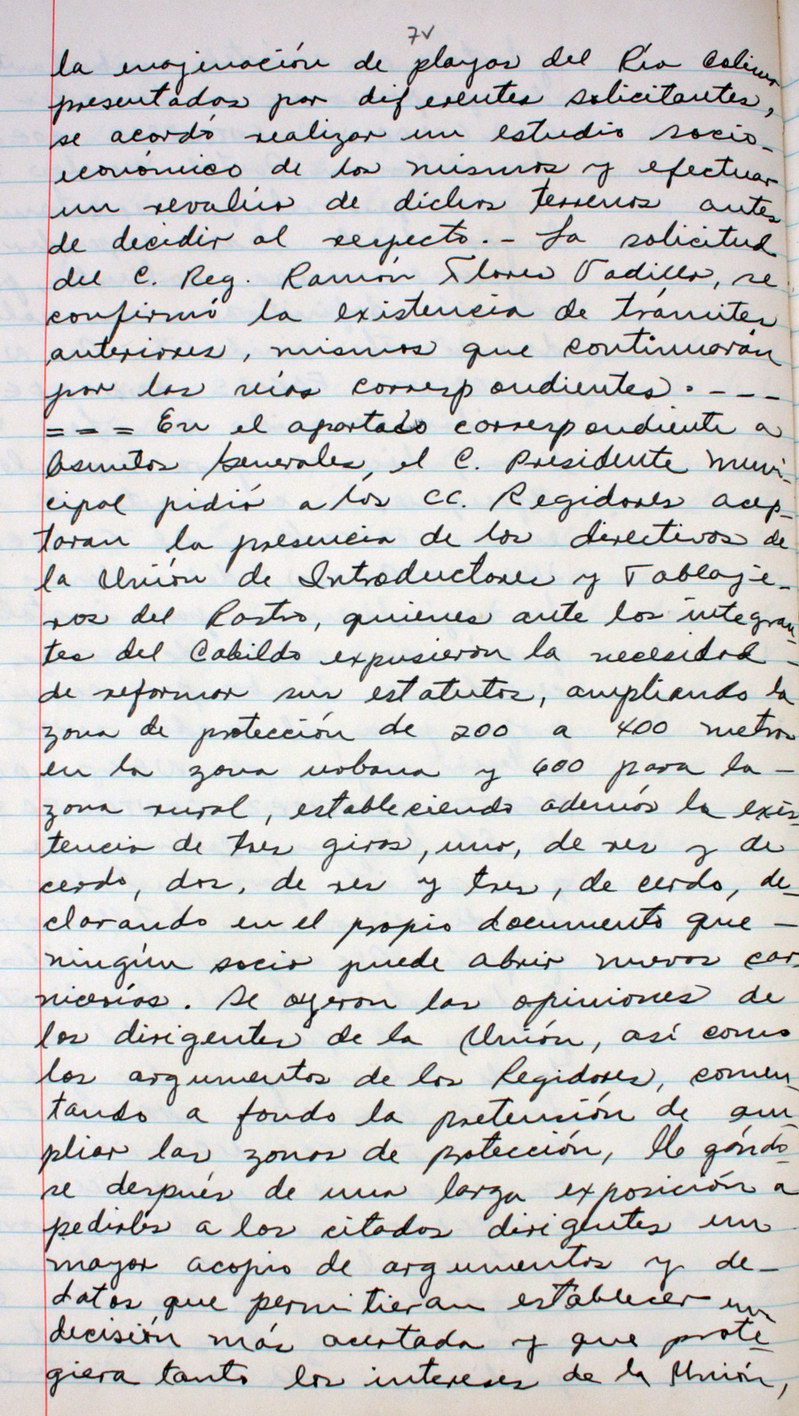 7v
la enajenación de playas del Río Colima
presentadas por diferentes solicitantes,
se acordó realizar un estudio socio-
económico de los mismos y efectuar
un revalúo de dichos terrenos antes
de decidir al respecto.- La solicitud
del C. Reg. Ramón Flores Vadillo, se
confirmó la existencia de trámites
anteriores, mismos que continuarán
por las vías correspondientes. - - -
= = = En el apartado correspondiente a
Asuntos Generales, el C. Presidente Muni-
cipal pidió a los CC. Regidores acep-
taran la presencia de los directivos de
la Unión de Introductores y Tablaje-
ros del Rastro, quienes ante los integran-
tes del Cabildo expusieron la necesidad -
de reformar sus estatutos, ampliando la
zona de protección de 200 a 400 metros
en la zona urbana y 600 para la -
zona rural, estableciendo además la exis-
tencia de tres giros, uno, de res y de
cerdo, dos, de res y tres, de cerdo, de-
clarando en el propio documento que -
ningún socio puede abrir nuevas car-
nicerías. Se oyeron las opiniones de
los dirigentes de la Unión, así como
los argumentos de los Regidores, comen-
tando a fondo la pretensión de am-
pliar las zonas de protección, llegándo-
se después de una larga exposición a
pedirles a los citados dirigentes un
mayor acopio de argumentos y de-
datos que permitieran establecer una
decisión más acertada y que prote-
giera tanto los intereses de la Unión,